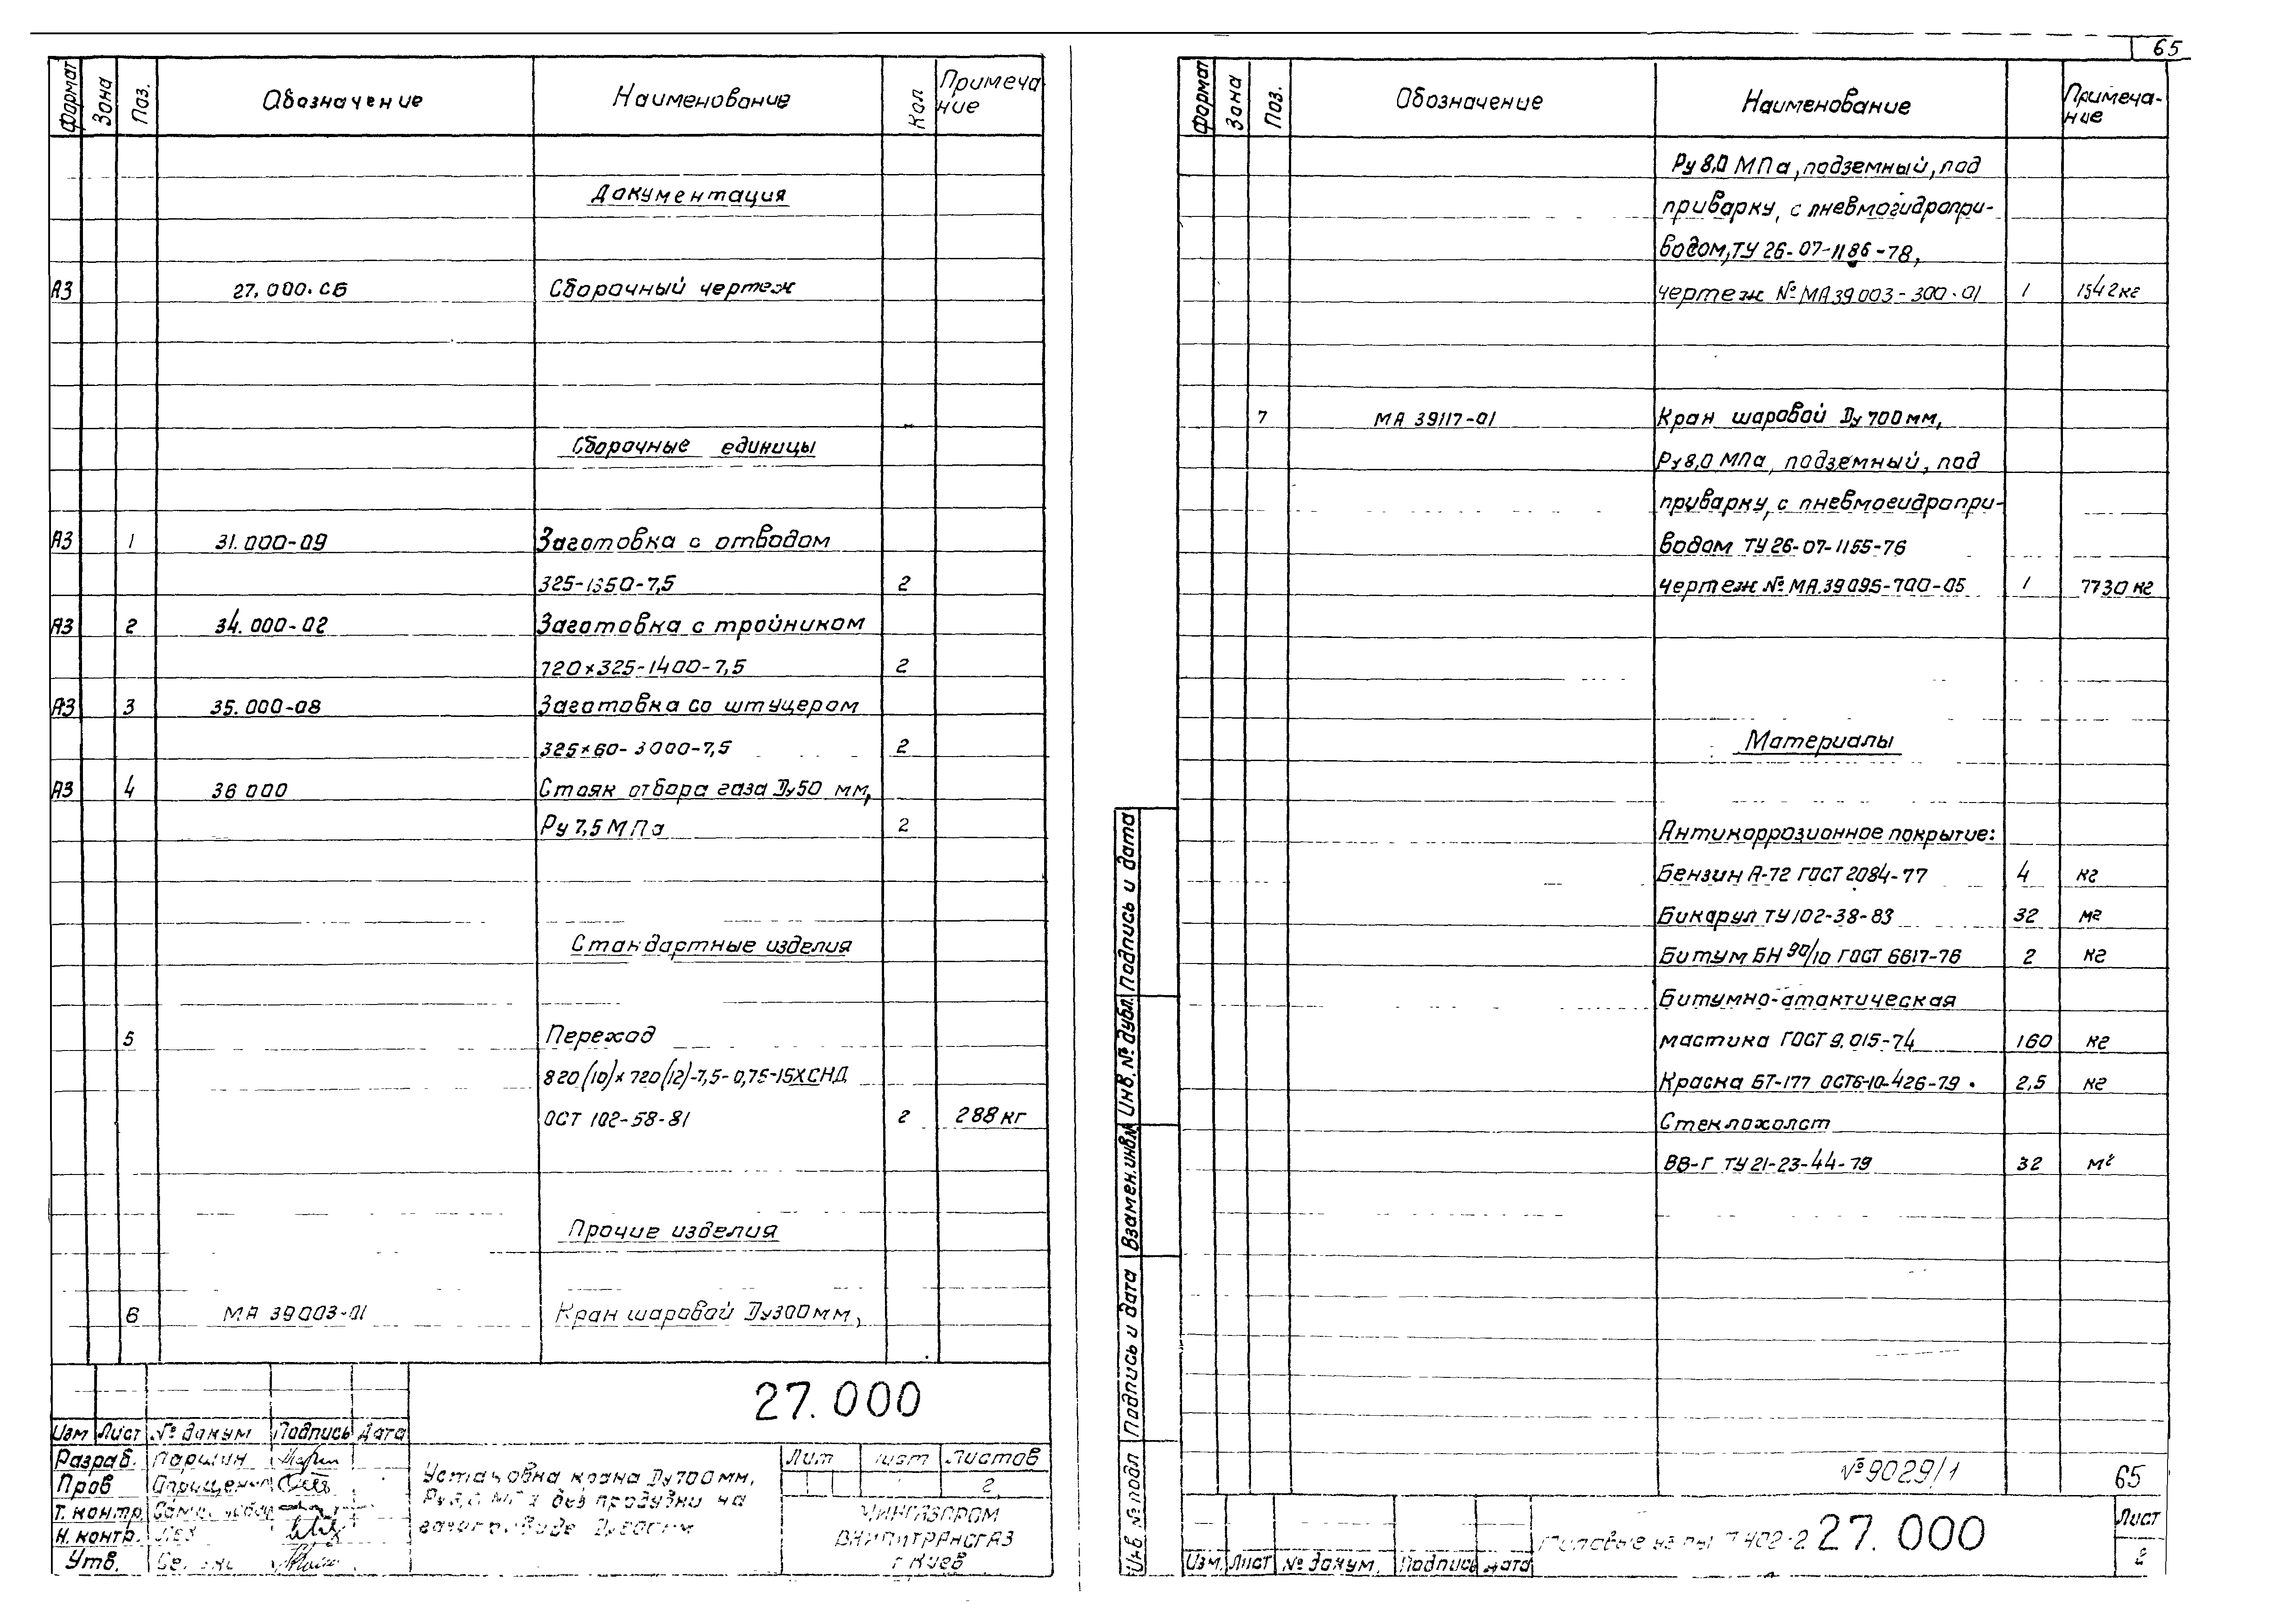 65
Формат Зона Поз. Обозначение Наименование Кол Примеча
ние
Документация
А3 27.000.СБ Сборочный чертеж
Сборочные единицы
А3 1 31.000-09 Заготовка с отводом
325-1350-7,5 2
А3 2 34.000-02 Заготовка с тройником
720×325-1400-7,5 2
А3 3 35.000-08 Заготовка со штуцером
325×60-3000-7,5 2
А3 4 36 000 Стояк отбора газа Ду50 мм,
Ру 7,5 МПа 2
Стандартные изделия
5 Переход
820(10)×720(12)-7,5-0,75-15ХСНД
ОСТ 102-58-81 2 288 кг
Прочие изделия
6 МА 39003-01 Кран шаровой Ду300мм,
27.000
Изм Лист № докум Подпись Дата
Разраб. Паршин
Пров
Т. контр
Н. контр.
Утв.
Установка крана Ду700мм,
без продувки на
Лит Лист Листов
2
МИНГАЗПРОМ
ВНИПИТРАНСГАЗ
г. Киев
Формат Зона Поз. Обозначение Наименование Примеча-
ние
Ру 8,0 МПа, подземный, под
приварку, с пневмогидропри-
водом, ТУ 26-07-1186-78,
чертеж № МА39003-300-01 1 1542кг
7 МА 39117-01 Кран шаровой Ду 700мм,
Ру 8,0 МПа, подземный, под
приварку, с пневмогидропри-
водом ТУ 26-07-1155-76
чертеж № МА.39095-700-05 1 7730 кг
Материалы
Антикоррозионное покрытие:
Бензин А-72 ГОСТ 2084-77 4 кг
Бикарул ТУ 102-38-83 32 м2
Битум БН 90/10 ГОСТ 6617-76 2 кг
Битумно-атактическая
мастика ГОСТ 9.015-74 160 кг
Краска БТ-177 ОСТ6-10-426-79 2,5 кг
Стеклохолст
ВВ-Г ТУ 21-23-44-79 32 м²
№9029/1 65
27.000
Лист
2
Изм. Лист № докум. Подпись дата
Инв № подл Подпись и дата Взамен.инв№ Инв.№ дубл. Подпись и дата